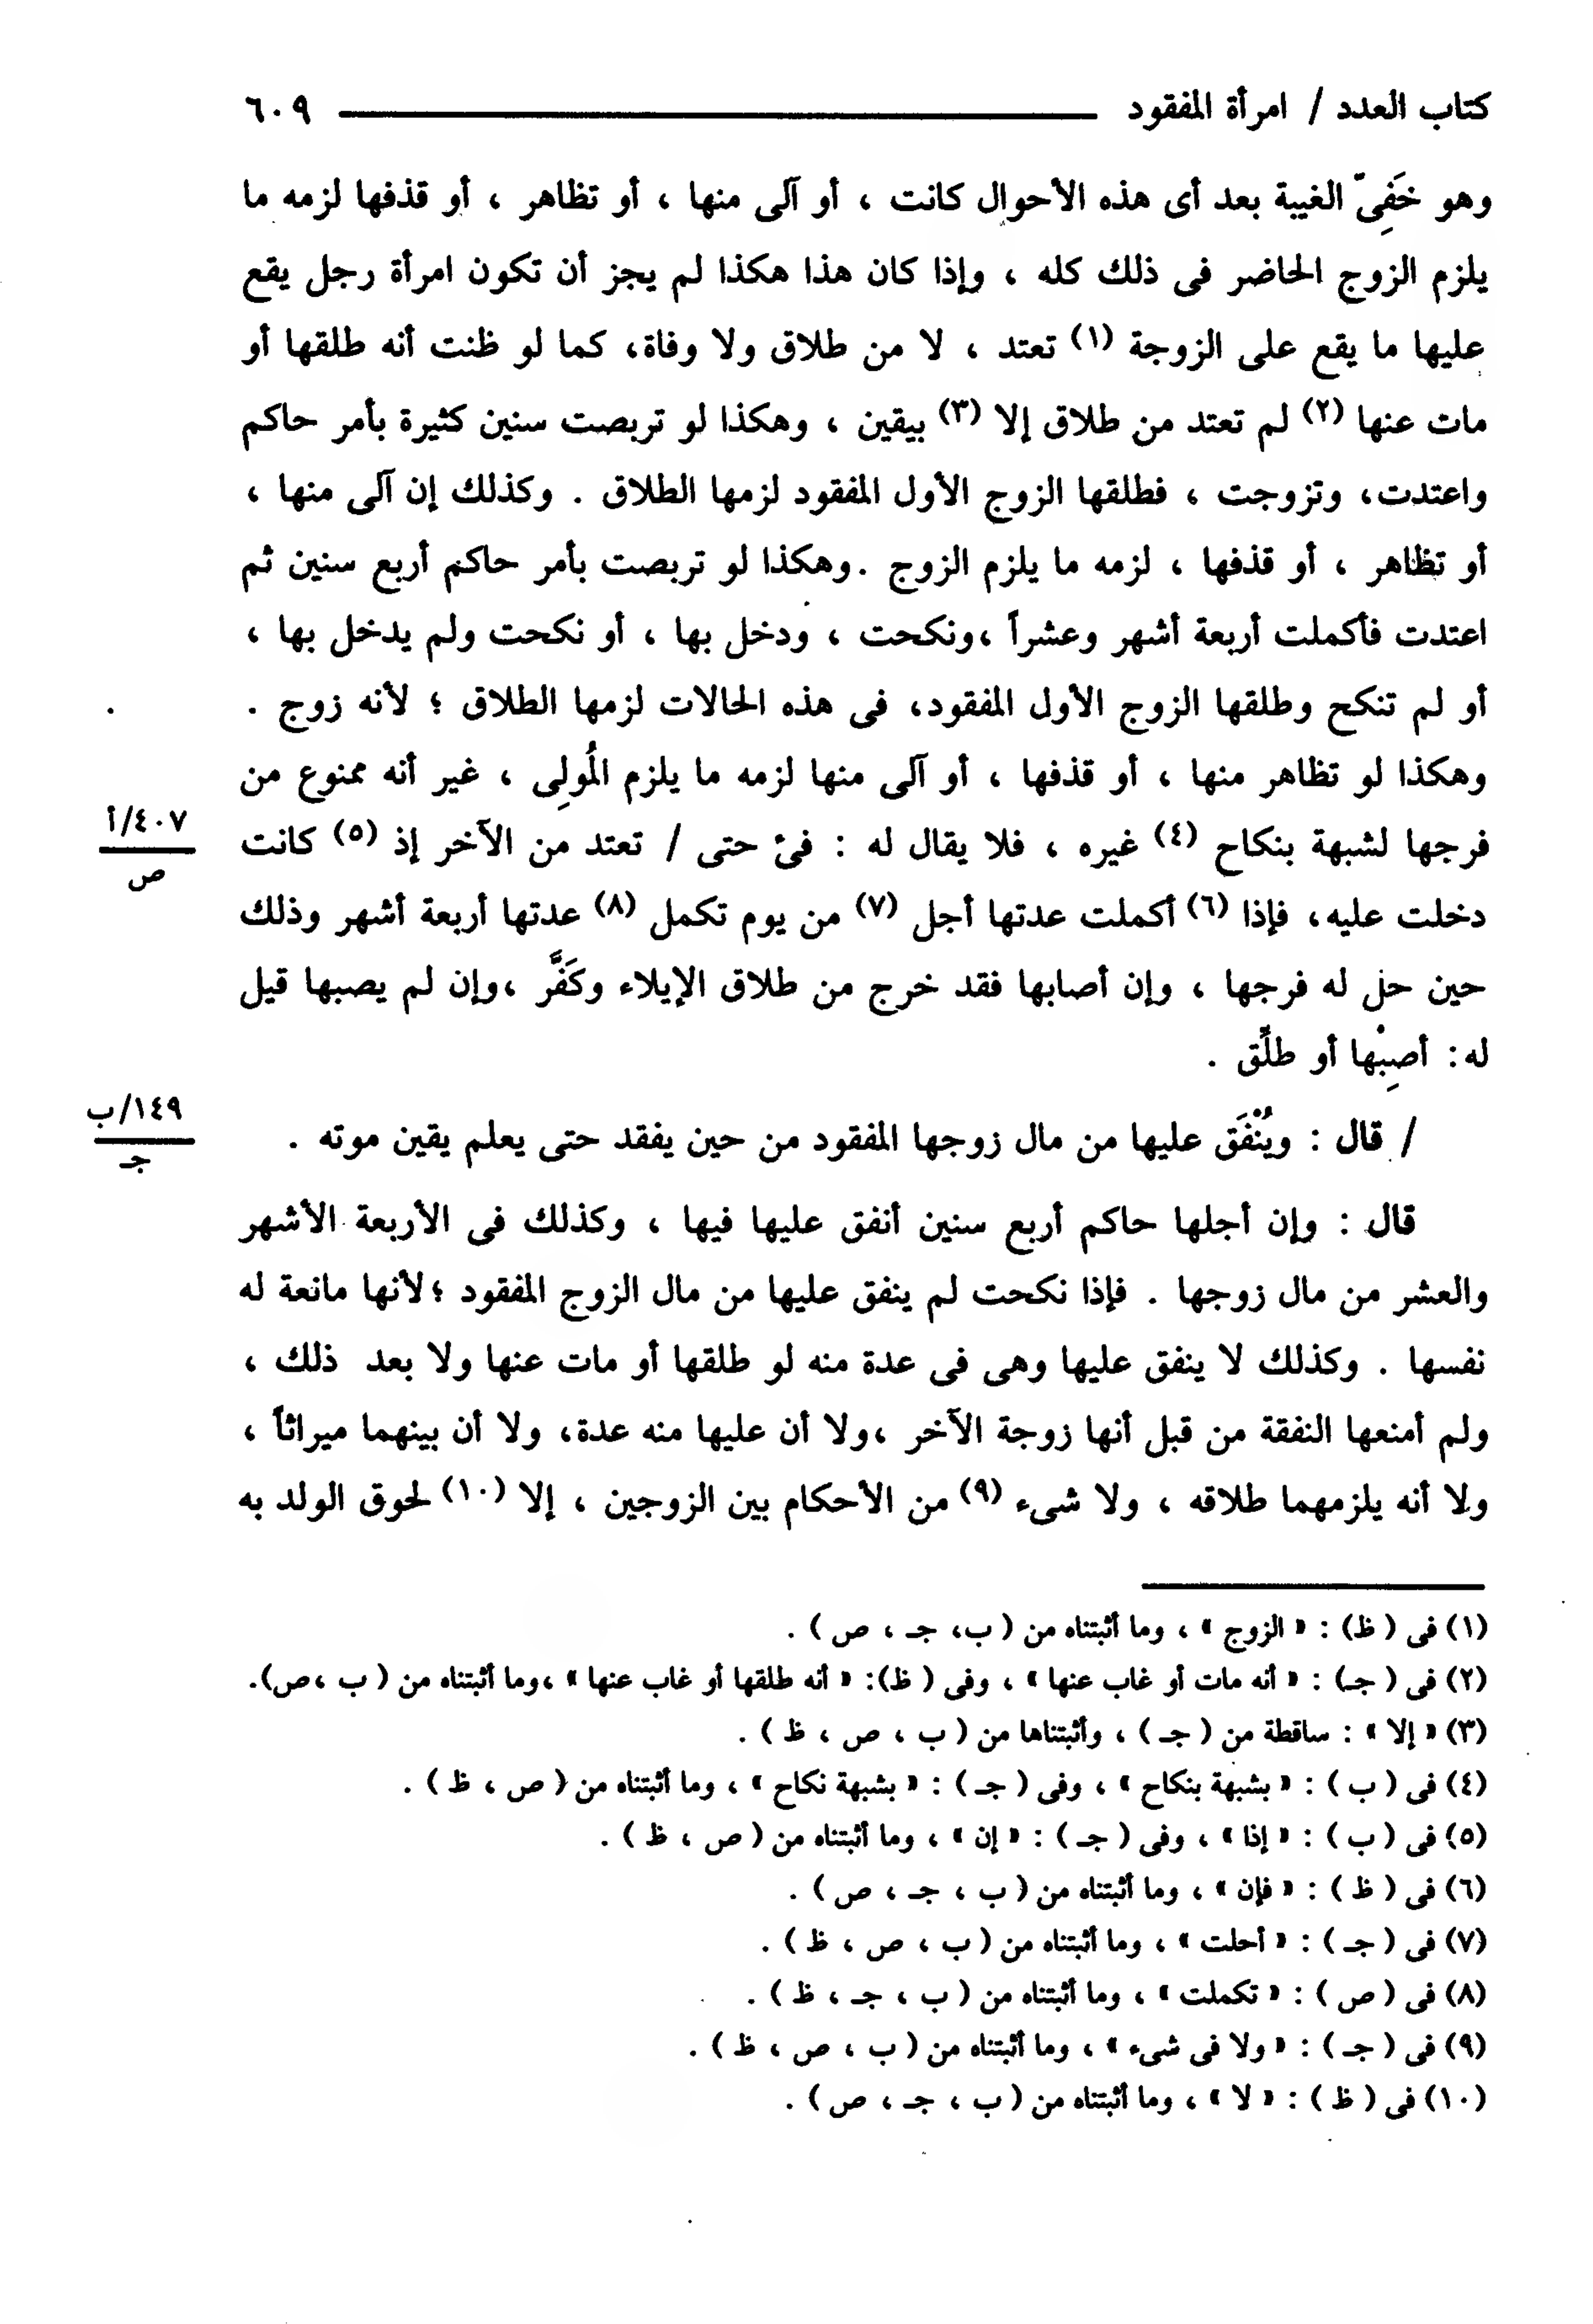 كتاب العدد / امرأة المفقود ٦٠٩
وهو خَفِىّ الغيبة بعد أى هذه الأحوال كانت ، أو آلى منها ، أو تظاهر ، أو قذفها لزمه ما
يلزم الزوج الحاضر فى ذلك كله ، وإذا كان هذا هكذا لم يجز أن تكون امرأة رجل يقع
عليها ما يقع على الزوجة (١) تعتد ، لا من طلاق ولا وفاة، كما لو ظنت أنه طلقها أو
مات عنها (٢) لم تعتد من طلاق إلا (٣) بيقين ، وهكذا لو تربصت سنين كثيرة بأمر حاكم
واعتدت، وتزوجت ، فطلقها الزوج الأول المفقود لزمها الطلاق . وكذلك إن آلى منها ،
أو تظاهر ، أو قذفها ، لزمه ما يلزم الزوج .وهكذا لو تربصت بأمر حاكم أربع سنين ثم
اعتدت فأكملت أربعة أشهر وعشراً ،ونكحت ، ودخل بها ، أو نكحت ولم يدخل بها ،
أو لم تنكح وطلقها الزوج الأول المفقود، فى هذه الحالات لزمها الطلاق ؛ لأنه زوج .
وهكذا لو تظاهر منها ، أو قذفها ، أو آلى منها لزمه ما يلزم المُولِى ، غير أنه ممنوع من
فرجها لشبهة بنكاح (٤) غيره ، فلا يقال له : فئ حتى / تعتد من الآخر إذ (٥) كانت
٤٠٧/أ
ص
دخلت عليه، فإذا (٦) أكملت عدتها أجل (٧) من يوم تكمل (٨) عدتها أربعة أشهر وذلك
حين حل له فرجها ، وإن أصابها فقد خرج من طلاق الإيلاء وكَفَّر ،وإن لم يصبها قيل
له: أصِبْها أو طلِّق .
/ قال : ويُنْفَق عليها من مال زوجها المفقود من حين يفقد حتى يعلم يقين موته .
١٤٩/ب
جـ
قال : وإن أجلها حاكم أربع سنين أنفق عليها فيها ، وكذلك فى الأربعة الأشهر
والعشر من مال زوجها . فإذا نكحت لم ينفق عليها من مال الزوج المفقود ؛لأنها مانعة له
نفسها . وكذلك لا ينفق عليها وهى فى عدة منه لو طلقها أو مات عنها ولا بعد ذلك ،
ولم أمنعها النفقة من قبل أنها زوجة الآخر ،ولا أن عليها منه عدة، ولا أن بينهما ميراثاً ،
ولا أنه يلزمهما طلاقه ، ولا شىء (٩) من الأحكام بين الزوجين ، إلا (١٠) لحوق الولد به
(١) فى ( ظ) : « الزوج » ، وما أثبتناه من ( ب، جـ ، ص ) .
(٢) فى ( جـ) : « أنه مات أو غاب عنها » ، وفى ( ظ): « أنه طلقها أو غاب عنها » ،وما أثبتناه من ( ب ،ص).
(٣) « إلا » : ساقطة من ( جـ ) ، وأثبتناها من ( ب ، ص ، ظ ) .
(٤) فى ( ب ) : « بشبهة بنكاح » ، وفى ( جـ ) : « بشبهة نكاح » ، وما أثبتناه من ( ص ، ظ ) .
(٥) فى ( ب ) : « إذا » ، وفى ( جـ ) : « إن » ، وما أثبتناه من ( ص ، ظ ) .
(٦) فى ( ظ ) : « فإن » ، وما أثبتناه من ( ب ، جـ ، ص ) .
(٧) فى ( جـ ) : « أحلت » ، وما أثبتناه من ( ب ، ص ، ظ ) .
(٨) فى ( ص ) : « تكملت » ، وما أثبتناه من ( ب ، جـ ، ظ ) .
(٩) فى ( جـ ) : « ولا فى شىء » ، وما أثبتناه من ( ب ، ص ، ظ ) .
(١٠) فى ( ظ ) : « لا » ، وما أثبتناه من ( ب ، جـ ، ص ) .